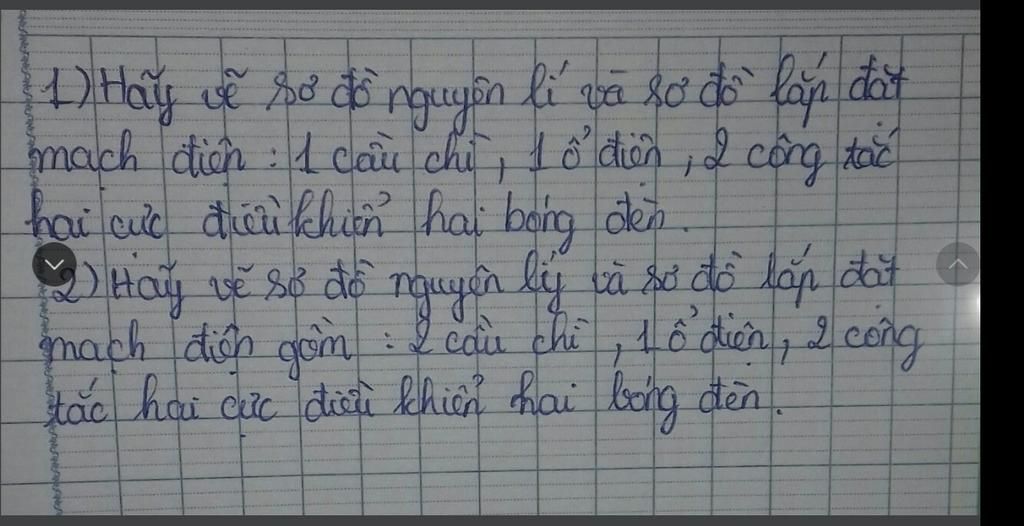 1) Hãy vẽ sơ đồ nguyên lí và sơ đồ lắp đặt
mạch điện : 1 cầu chì, 1 ổ điện, 2 công tắc
hai cực điều khiển hai bóng đèn.
2) Hãy vẽ sơ đồ nguyên lý và sơ đồ lắp đặt
mạch điện gồm : 2 cầu chì, 1 ổ điện, 2 công
tắc hai cực điều khiển hai bóng đèn.